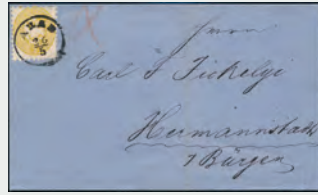 ARAD
26
5
Herrn
Carl S Jickelyi
Hermannstadt
7 Bürgen